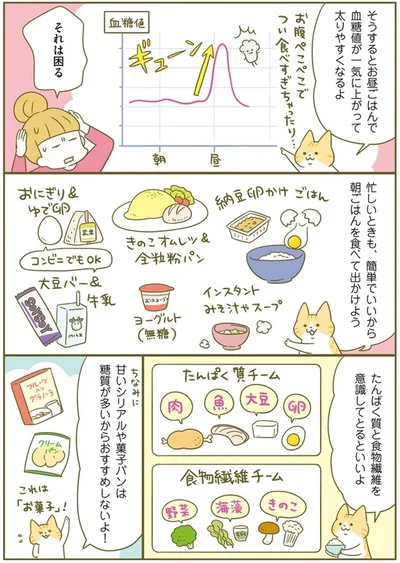 そうするとお昼ごはんで
血糖値が一気に上がって
太りやすくなるよ
お腹ぺこぺこで
つい食べすぎちゃったり…
血糖値
ギューン
朝
昼
それは困る
忙しいときも、簡単でいいから
朝ごはんを食べて出かけよう
納豆卵かけごはん
きのこオムレツ＆
全粒粉パン
おにぎり＆
ゆで卵
玄米
コンビニでもOK
大豆バー＆
牛乳
milk
ヨーグルト
(無糖)
インスタント
みそ汁やスープ
たんぱく質と食物繊維を
意識してとるといいよ
たんぱく質チーム
肉
魚
大豆
卵
食物繊維チーム
野菜
海藻
きのこ
ちなみに
甘いシリアルや菓子パンは
糖質が多いからおすすめしないよ！
フルーツ
グラノーラ
クリーム
パン
これは
「お菓子」！